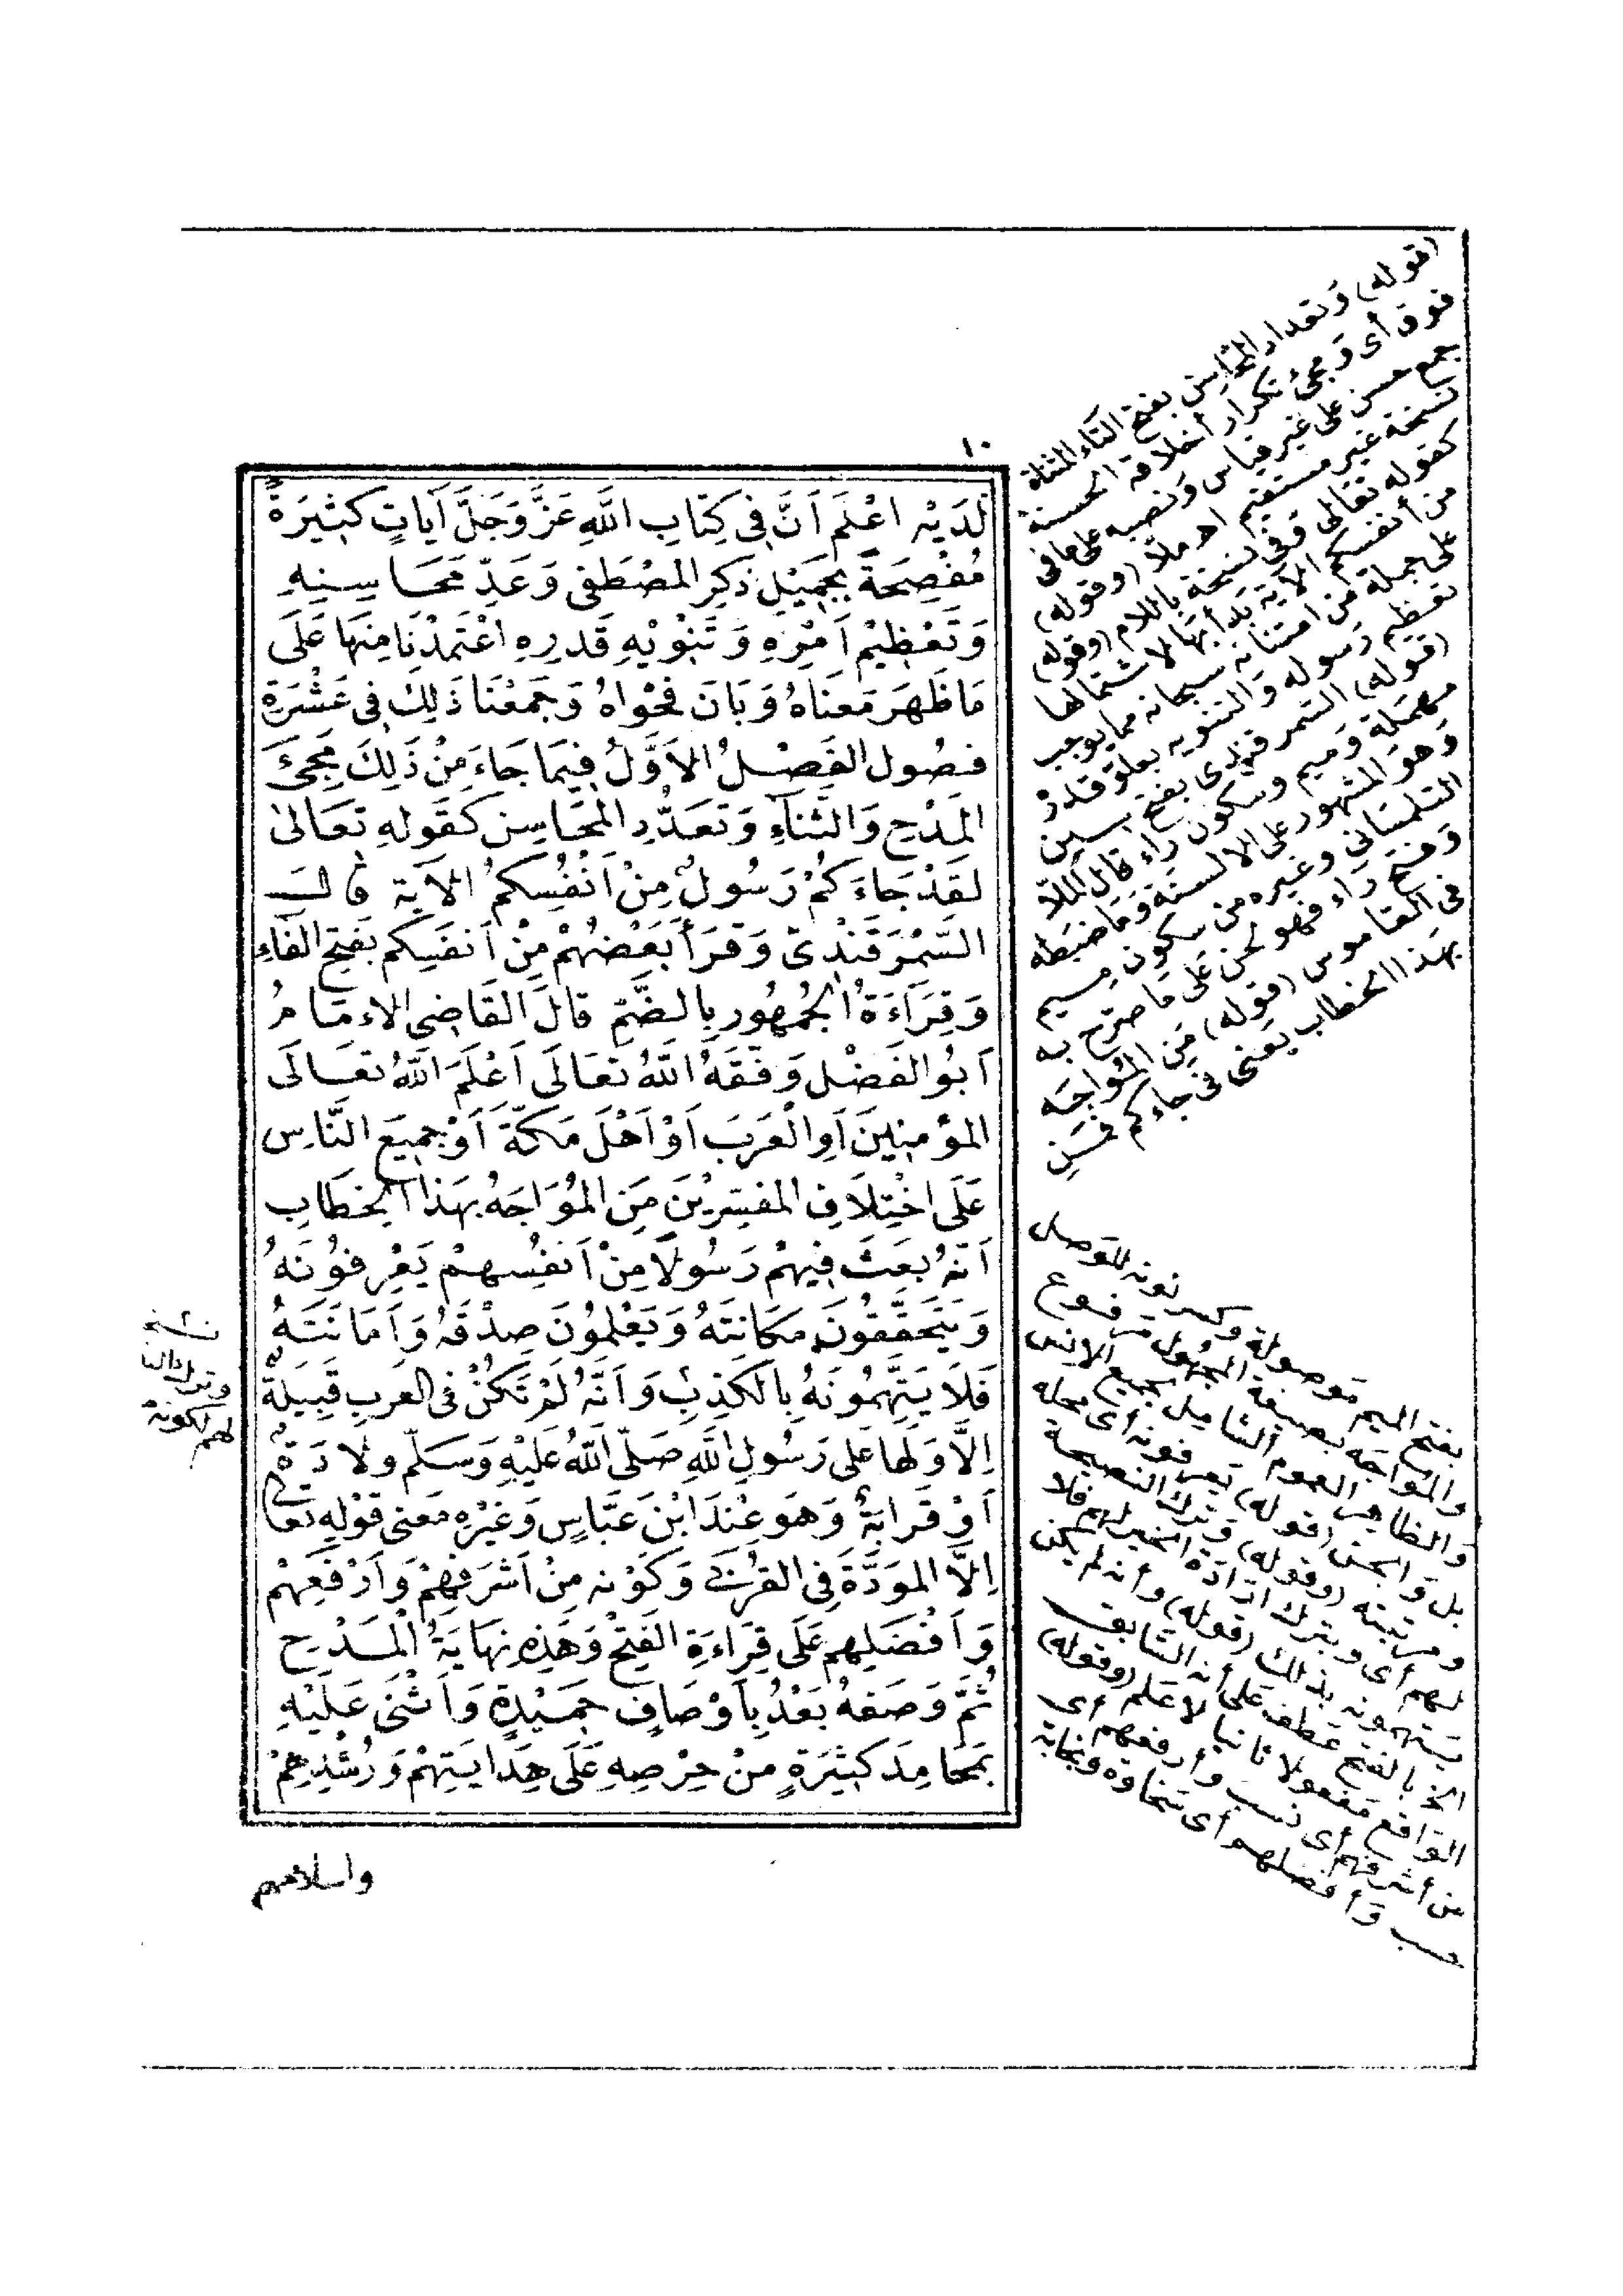 ١٠
لَدَيْهِ اعْلَمْ اَنَّ فِى كِتَابِ اللَّهِ عَزَّ وَجَلَّ آيَاتٍ كَثِيرَةً
مُفْصِحَةً بِجَمِيْلِ ذِكْرِ المُصْطَفى وَعَدِّ مَحَاسِنِهِ
وَتَعْظِيْمِ اَمْرِهِ وَتَنْوِيْهِ قَدْرِهِ اعْتَمَدْنَا مِنْهَا عَلَى
مَا ظَهَرَ مَعْنَاهُ وَبَانَ فَحْوَاهُ وَجَمَعْنَا ذَلِكَ فِى عَشْرَةِ
فصُول الفَصْلُ الاَوَّلُ فِيمَا جَاءَ مِنْ ذَلِكَ مَجِئَ
المَدْحِ وَالثَّنَآءِ وَتَعَدُّدِ المَحَاسِنِ كَقَوْلِهِ تَعَالىٰ
لَقَدْ جَاءَكُمْ رَسُولٌ مِنْ اَنْفُسِكُمُ الآيَة قال
السَّمَرْقَنْدِىُّ وَقَرَأَ بَعْضُهُمْ مِنْ اَنْفَسِكُم بفَتحِ الفَاءِ
وَقِرَآءَةُ الجُمْهُورِ بِالضَّمِّ قَالَ القَاضِى الامَامُ
اَبُو الفَضْلِ وَفَّقَهُ اللَّهُ تعَالَى اَعْلَمَ اللَّهُ تعَالَى
المؤمِنِينَ اَوِ الْعَرَبَ اَوْ اَهْلَ مَكَّةَ اَوْ جَمِيعَ النَّاسِ
عَلَى اخْتِلَافِ المفَسِّرِيْنَ مَنِ المُوَاجَهُ بِهَذَا الخِطَابِ
اَنَّهُ بعَثَ فِيهِمْ رَسُولًا مِنْ اَنفُسِهِمْ يَعْرِفُونَهُ
وَيَتَحَقَّقُونَ مَكَانَتَهُ وَيَعْلَمُونَ صِدْقَهُ وَاَمَانَتَهُ
فَلَا يَتَّهِمُونَهُ بِالكَذِبِ وَاَنَّهُ لَمْ تَكُنْ فى العربِ قَبِيلَةٌ
اِلَّا وَلَهَا عَلى رَسُولِ اللَّهِ صَلَّى اللَّهُ عَلَيْهِ وَسَلَّم ولَادَةٌ
اَوْ قَرَابَةٌ وَهوَ عِنْدَ ابْنِ عَبَّاسٍ وَغيْرِهِ مَعنى قَوْلِهِ تعالى
اِلَّا المَوَدَّةَ فِى القُرْبى وَكَوْنِهِ مِنْ اَشْرَفِهِمْ وَاَرْفَعِهِمْ
وَاَفْضَلِهِم عَلَى قِرَاءَةِ الفَتْحِ وَهَذِهِ نِهَايَةُ الْمَدْحِ
ثُمَّ وَصَفَهُ بَعْدُ بِاَوْصَافٍ حَمِيْدَةٍ وَاَثْنَى عَلَيْهِ
بمَحَامِدَ كَثِيْرَةٍ مِنْ حِرْصِهِ عَلَى هِدَايَتِهِمْ وَرُشْدِهِمْ
واسلامهم
(قوله) وَتعداد المحَاسِن بفتح التَّاء المثناة
فوق أى وَمجئ تكرار أخلاقه الحسنة
جمع حسن على غير قياس وَنصبه على ما فى
نسخة غير مستقيم اهـ ملّا (وقوله)
كقوله تعَالى وَفى نسخة باللام (وقوله)
من أنفسكم الآية بَدأ بهَا لاشتمالها
على جملة من امتنانه سبحانه مما يوجب
تعظيم رَسوله وَالتنويه بعلوّ قدره
(قوله) السَّمرقندى بفتح سين
مهملة وَميم وَسكون رَاء قال الملّا
وَهوَ المشهور على الالسنة وَمَا ضبَطه
التلمسَانى وغيره من سكون ميم
وَفتح رَاء فهو لحن على مَا صرّح به
فى القاموس (قوله) مَنِ المُوَاجَه
بهَذا الخطاب يعَنى فى جاءكم فمَنِ
بفتح الميم مَوصولة وكسر نونه للوَصل
وَالموَاجَه بصيغة المجهول مرفوع
وَالظاهِر العموم الشامِل لجميع الانس
بل وَالجن (قوله) يَعرفونه أى محله
ومرتبته (وقوله) وَترك النصيحة
لهم أى وبترك ارادة الخير لهم فلا
يتهمونه بذلك (قوله) وأنه لم يكن
الخ بالفتح عَطف على أنه السَّابق
الوَاقع مَفعولا ثانيا لاعلم (وقوله)
من أشرفهم أى نسب وأرفعهم أى
حسب وَأفضلهم أى سَخاوة ونجابة
لهم لكونه